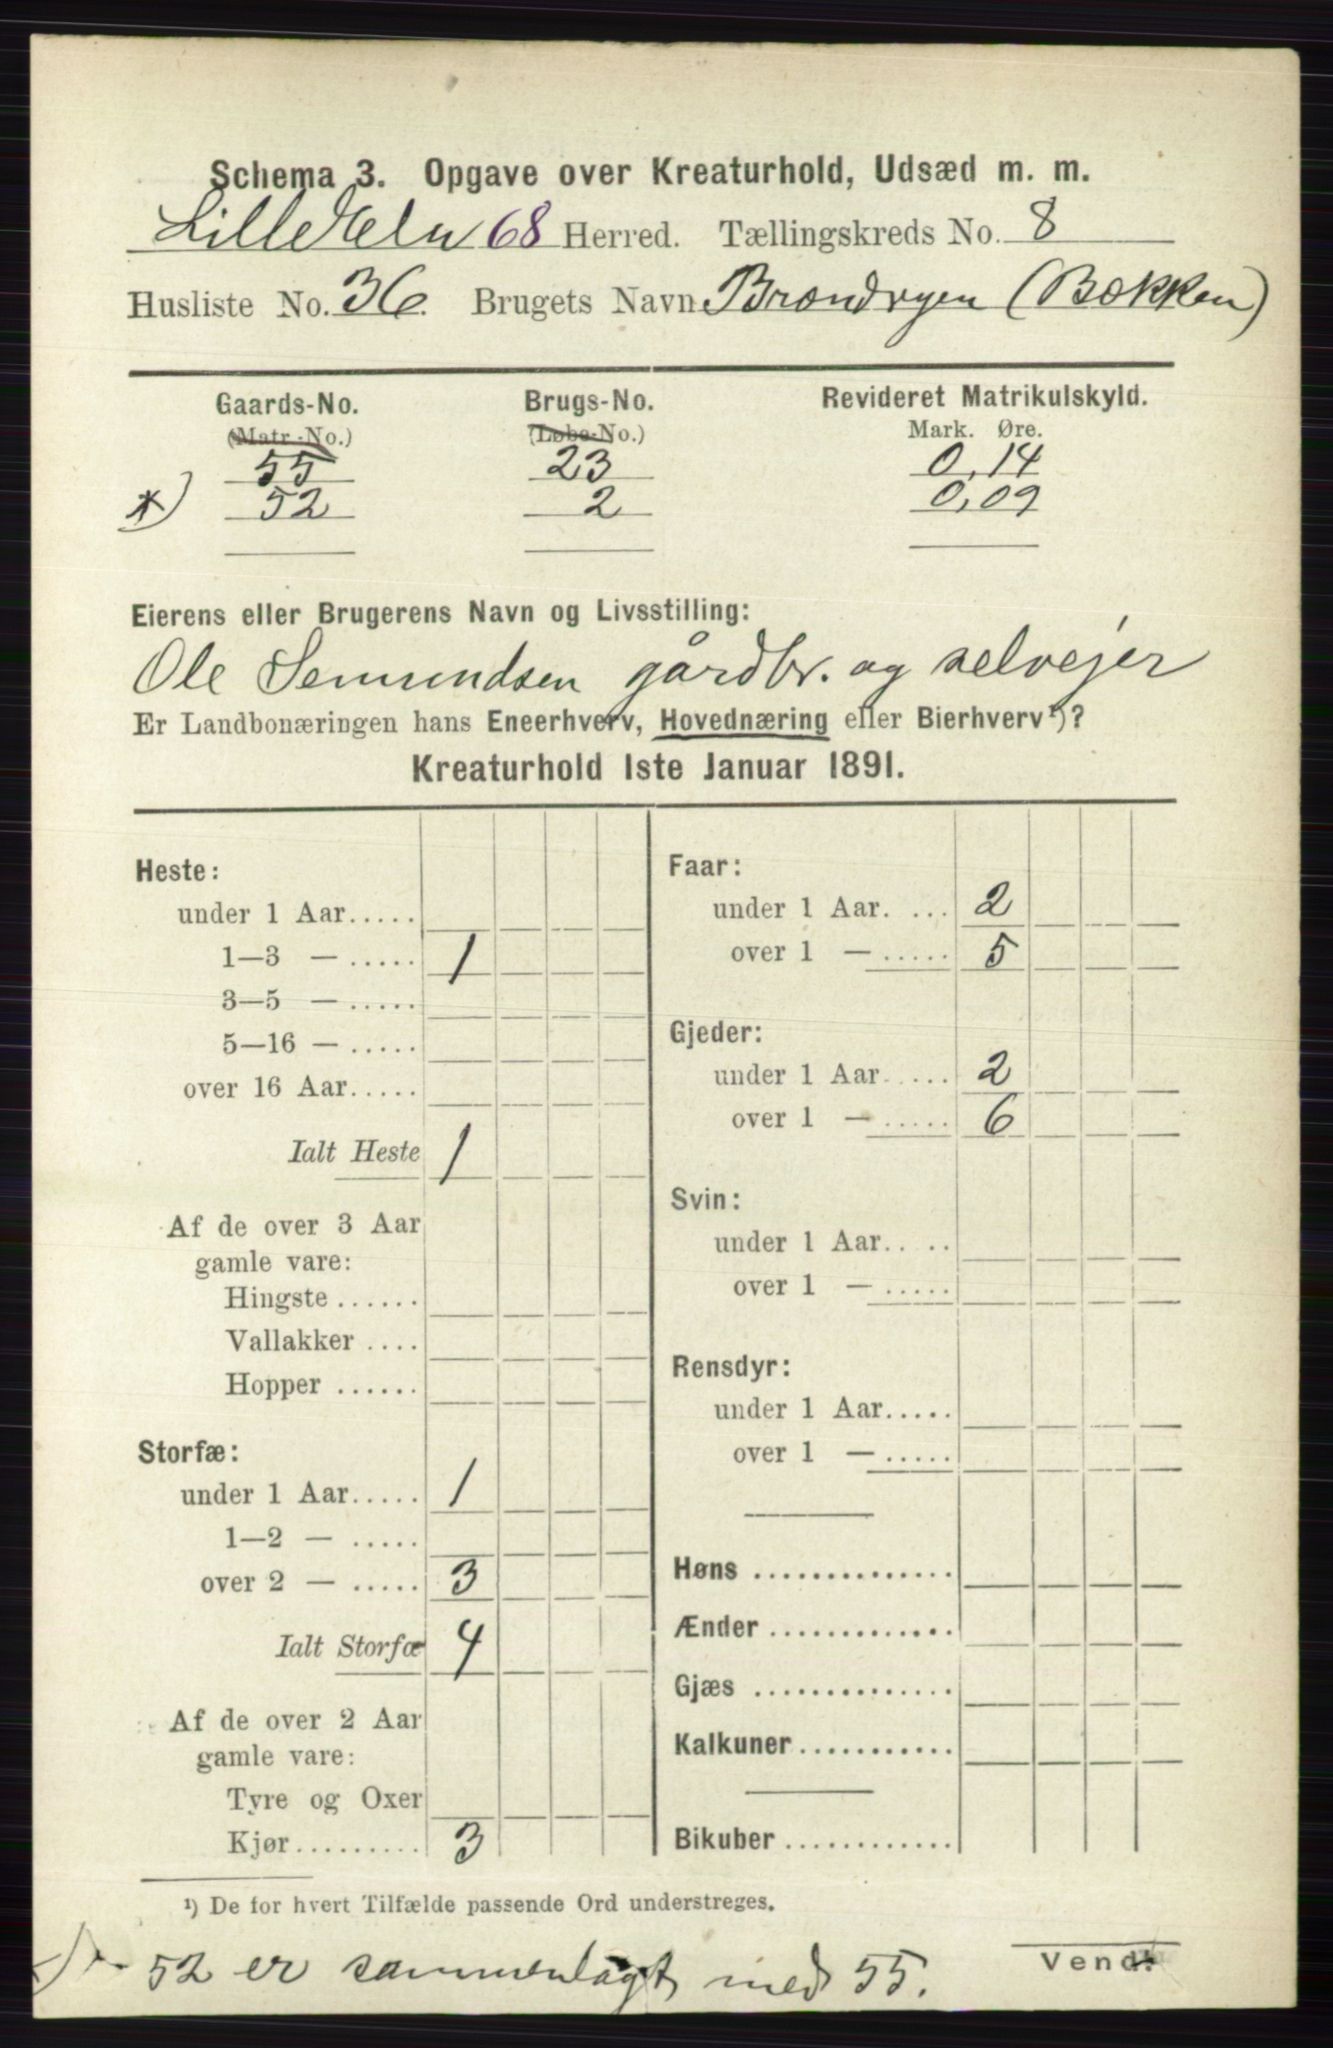 Schema 3. Opgave over Kreaturhold, Udsæd m. m.
Lille Elvedalen 68 Herred. Tællingskreds No. 8
Husliste No. 36. Brugets Navn Brændryen (Bækken)
Gaards-No. Brugs-No. Revideret Matrikulskyld.
(Matr.-No.) (Løbe-No.) Mark. Øre.
55 23 0,14
*) 52 2 0,09
Eierens eller Brugerens Navn og Livsstilling:
Ole Semundsen gårdbr. og selvejer
Er Landbonæringen hans Eneerhverv, Hovednæring eller Bierhverv¹)?
Kreaturhold 1ste Januar 1891.
Heste:
under 1 Aar.....
1—3 — ..... 1
3—5 — .....
5—16 — .....
over 16 Aar.....
Ialt Heste 1
Af de over 3 Aar
gamle vare:
Hingste ......
Vallakker ....
Hopper ......
Storfæ:
under 1 Aar..... 1
1—2 — .....
over 2 — ..... 3
Ialt Storfæ 4
Af de over 2 Aar
gamle vare:
Tyre og Oxer
Kjør......... 3
Faar:
under 1 Aar. .... 2
over 1 — ..... 5
Gjeder:
under 1 Aar..... 2
over 1 — ..... 6
Svin:
under 1 Aar.. ..
over 1 — .....
Rensdyr:
under 1 Aar.....
over 1 — .....
Høns ..............
Ænder .............
Gjæs ..............
Kalkuner...........
Bikuber ............
¹) De for hvert Tilfælde passende Ord understreges.
*) 52 er sammenlagt med 55.
Vend!